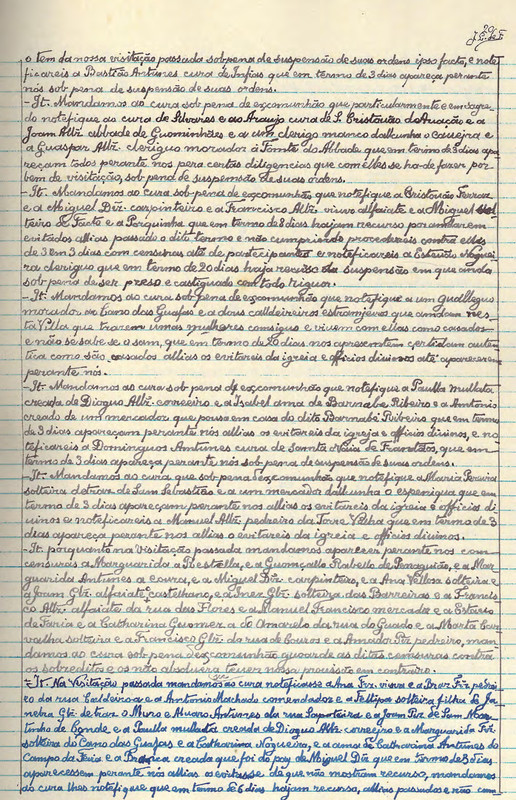 o tem da nossa visitação passada sob pena de suspensão de suas ordens ipso facto, e note
ficareis a Bastião Antunes cura de Infias que em termo de 3 dias apareça perante
nós sob pena de suspensão de suas ordens.
- It. Mandamos ao cura sob pena de excomunhão que particularmente e em segre
do notefique ao cura de Silvares e ao Araujo cura de S. Cristovão do e a
Joam Alvz abbade de Guominhães e a um clerigo manco dalcunha o e
a Guaspar Alvz clerigo morador à Fonte do Abbade que em termo de 3 dias apa
reçam todos perante nos pera certas diligencias que com elles se ha de fazer por
bem de visitação, sob pena de suspensão de suas ordens.
- It. Mandamos ao cura sob pena de excomunhão que notefique a Cristovão Ferraz
e a Miguel Diz carpinteiro e a Francisco Alvz viuvo alfaiate e a Miguel sol
teiro de e a que em termo de 8 dias hajam recurso
evitados allias passado o dito termo e não cumprindo procedereis contra elles
de 3 em 3 dias com censuras até de participantes e noteficareis a Estevão Noguei
ra clerigo que em termo de 20 dias haja recurso da suspensão em que anda
sob pena de ser preso e castigado com todo rigor.
- It. Mandamos ao cura sob pena de excomunhão que notefique a um guallego
morador ao Cano das Guafas e a dous caldeireiros estranjeiros que andam nes
ta Villa que trazem umas mulheres comsigo e vivem com ellas como casados
e não se sabe se o sam, que em termo de 20 dias nos apresentem certidam auten
tica como são casados allias os evitareis da igreia e officios divinos até aparecerem
perante nós.
It. Mandamos ao cura sob pena de excomunhão que notefique a Paulla mullata
creada de Dioguo Alvz correeiro e a Isabel ama de Barnabe Ribeiro e a Antonio
creado de um mercador que pousa em casa do dito Barnabé Ribeiro que em termo
de 3 dias apareçam perante nós allias os evitareis da igreja e officios divinos, e no
teficareis a Domingos Antunes cura de Santa Maria de que em
termo de 3 dias apareça perante nós sob pena de suspensão de suas ordens.
- It. Mandamos ao cura que sob pena de excomunhão que notefique a Maria Pereira
solteira detras de Sam Sebastião e a um mercador dalcunha o que em
termo de 3 dias apareçam perante nos allias os evitareis da igreia e officios di
uinos e noteficareis a Manuel Alvz pedreiro da Torre Velha que em termo de 3
dias apareça perante nos allias o evitareis da igreia e officios divinos.
- It. porquanto na Visitação passada mandamos aparecer perante nos com
censuras a Marguarida a Restella, e a Guomçallo Rabello de Penaguião, e a Mar
guarida Antunes a coura, e a Miguel Diz carpinteiro, e a Ana Vellosa solteira e
a Joam Glz alfaiate castelhano, e a Inez Glz solteira das Barreiras e a Francis
co Alvz alfaiate da rua das Flores e a Manuel Francisco mercador e a Estevão
de Faria e a Catharina Guomez a do Amarelo da rua do Guado e a Marta Car
valha solteira e a Francisco Glz da rua de Couros e a Amador Piz pedreiro, man
damos ao cura sob pena de excomunhão guoarde as ditas censuras contra
os sobreditos e os não absolvera trazer nossa provisão em contrairo.
- It. Na Visitação passada mandamos ao cura noteficasse a Ana Frz viuva e a Braz Frz pedrei
ro da rua Caldeiroa e a Antonio Machado comendador e a Fellipa solteira filha de Ja
nebra Glz de trás o Muro e Alvaro Antunes da rua Sapateira e a Joam Piz de Sam Mar
tinho de Conde e a Paulla mullata creada de Dioguo Alvz correiro e a Marguarida Frz
solteira do Cano das Guafas e a Catharina Nogueira, e a ama de Catharina Antunes do
Campo da Feira e a creada que foi do pay de Miguel Diz que em termo de 3 dias
aparecessem perante nós allias os evitasse de que não mostram recurso, mandamos
ao cura lhes notefique que em termo de 6 dias hajam recurso, allias passados e não com